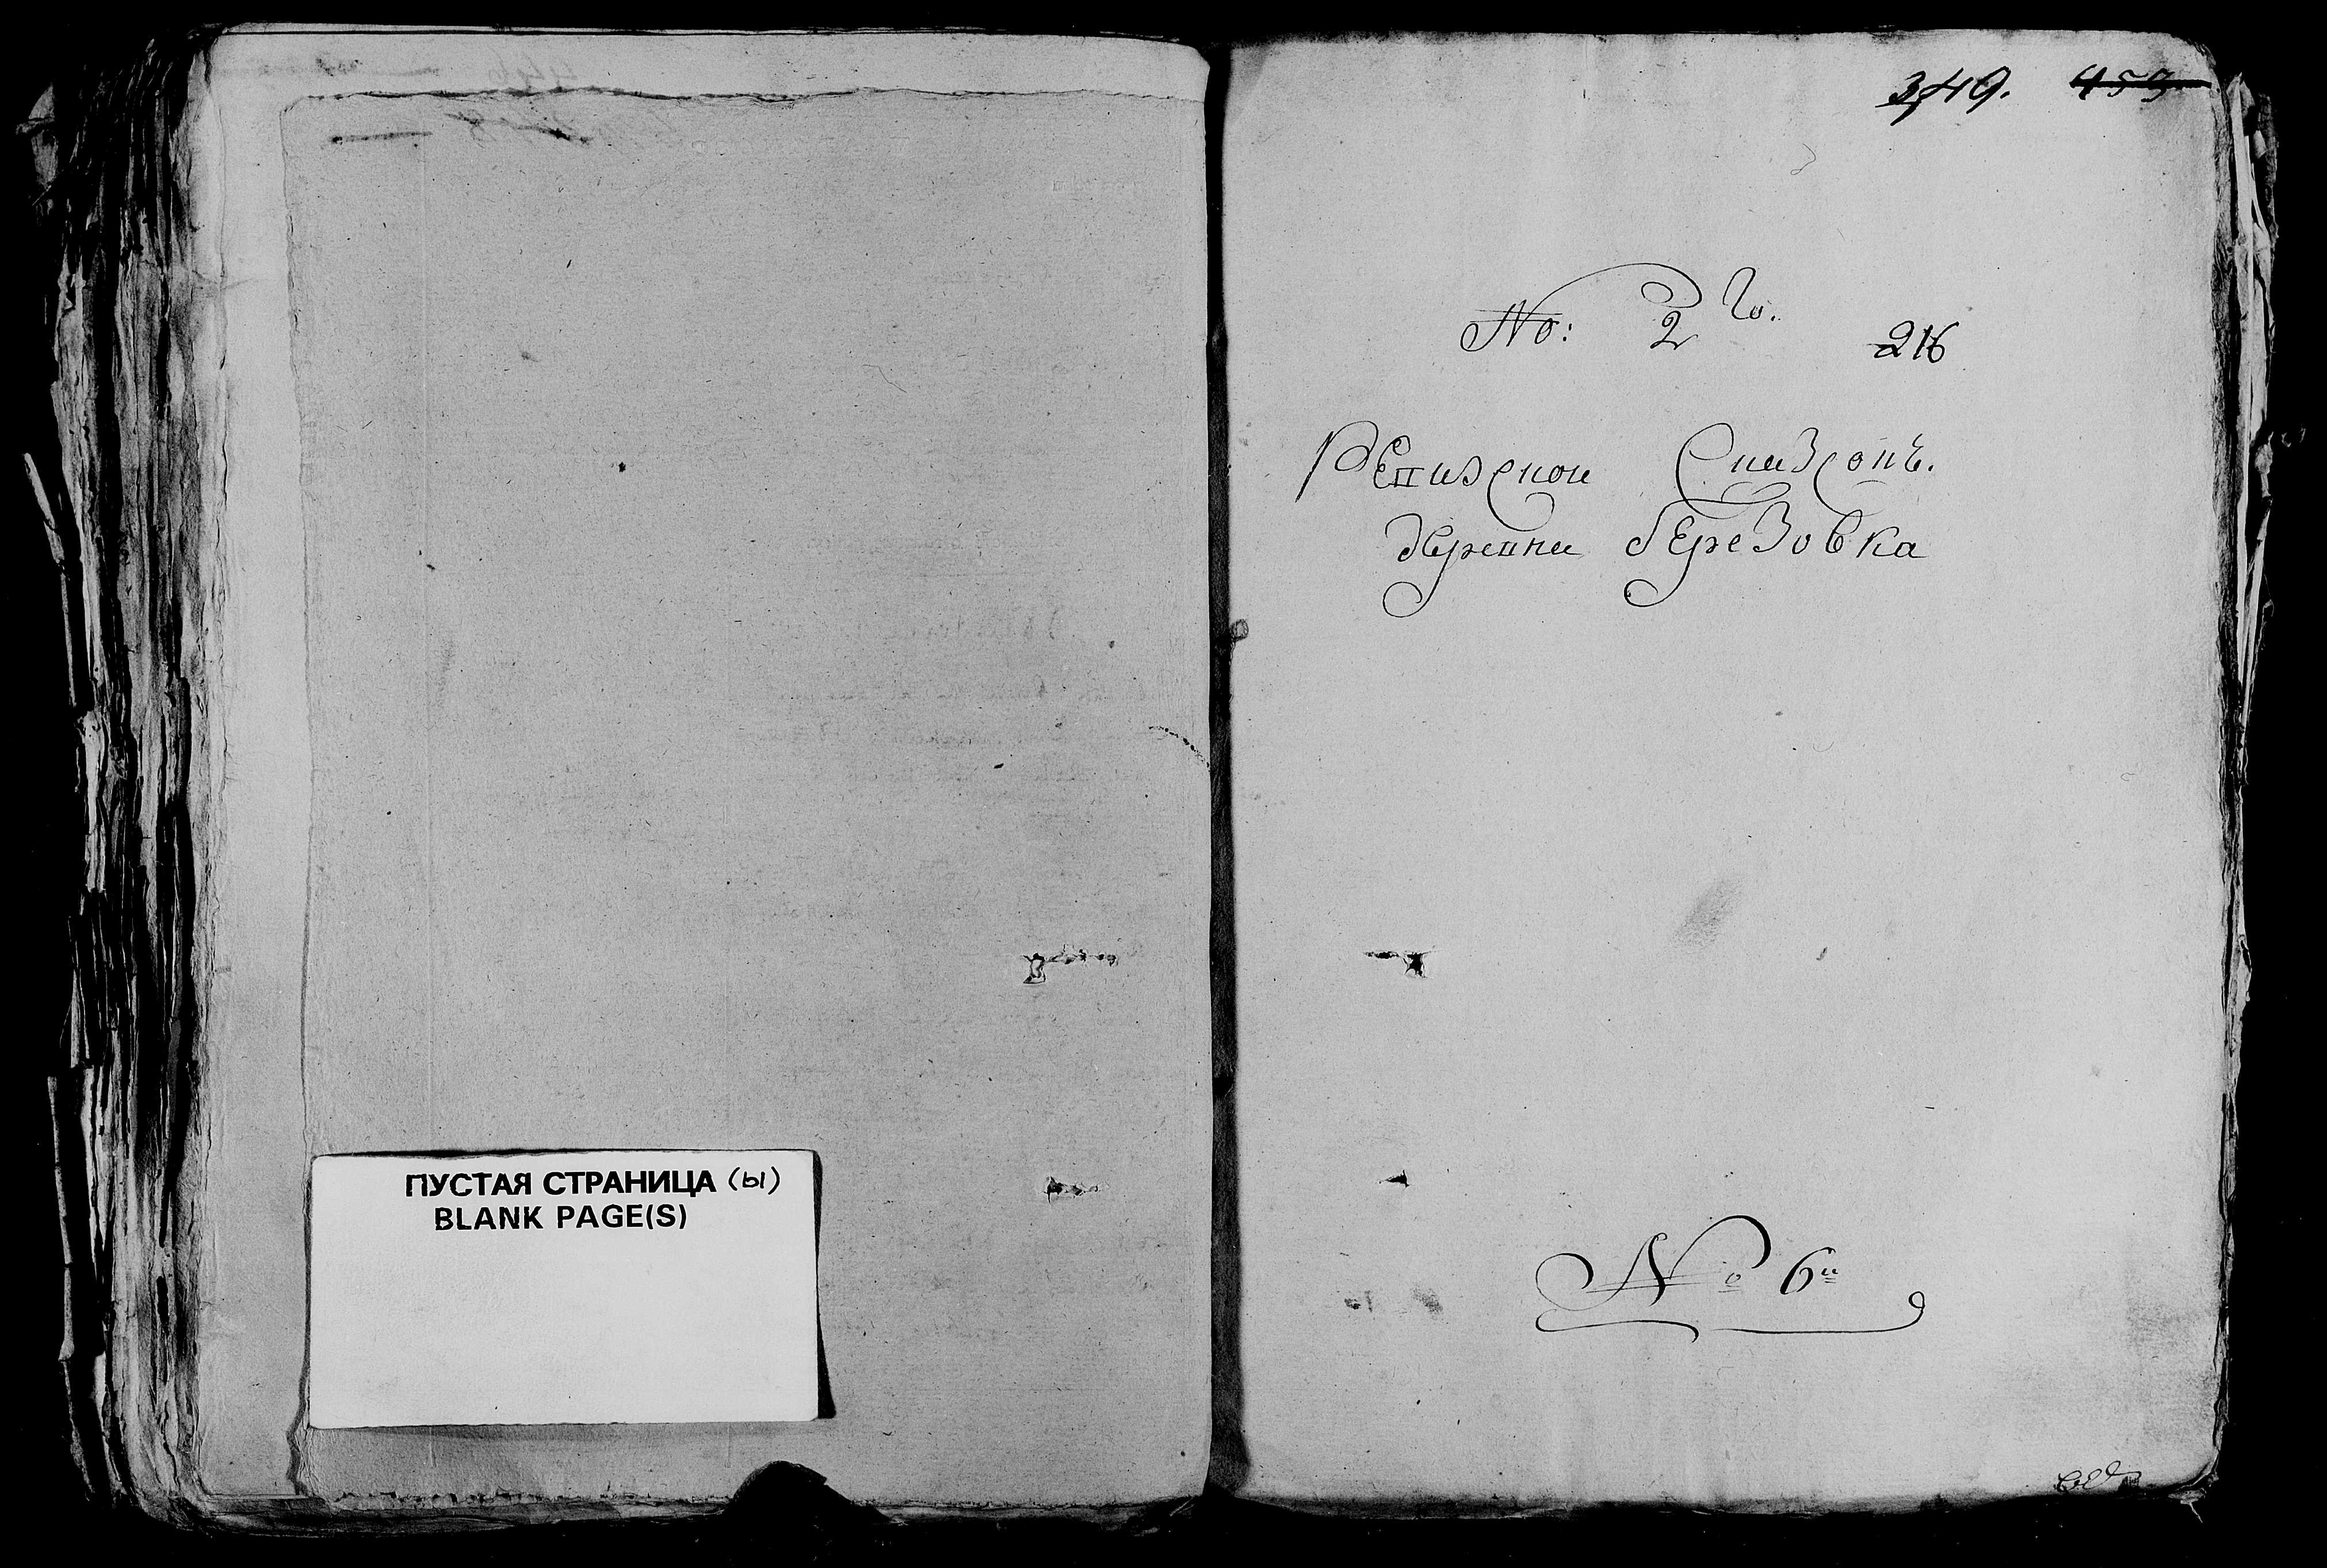 ПУСТАЯ СТРАНИЦА (ы)
BLANK PAGE(S)
349. 453
No: 2го.
216
Ревизской Списокъ.
деревни березовка
No 6й